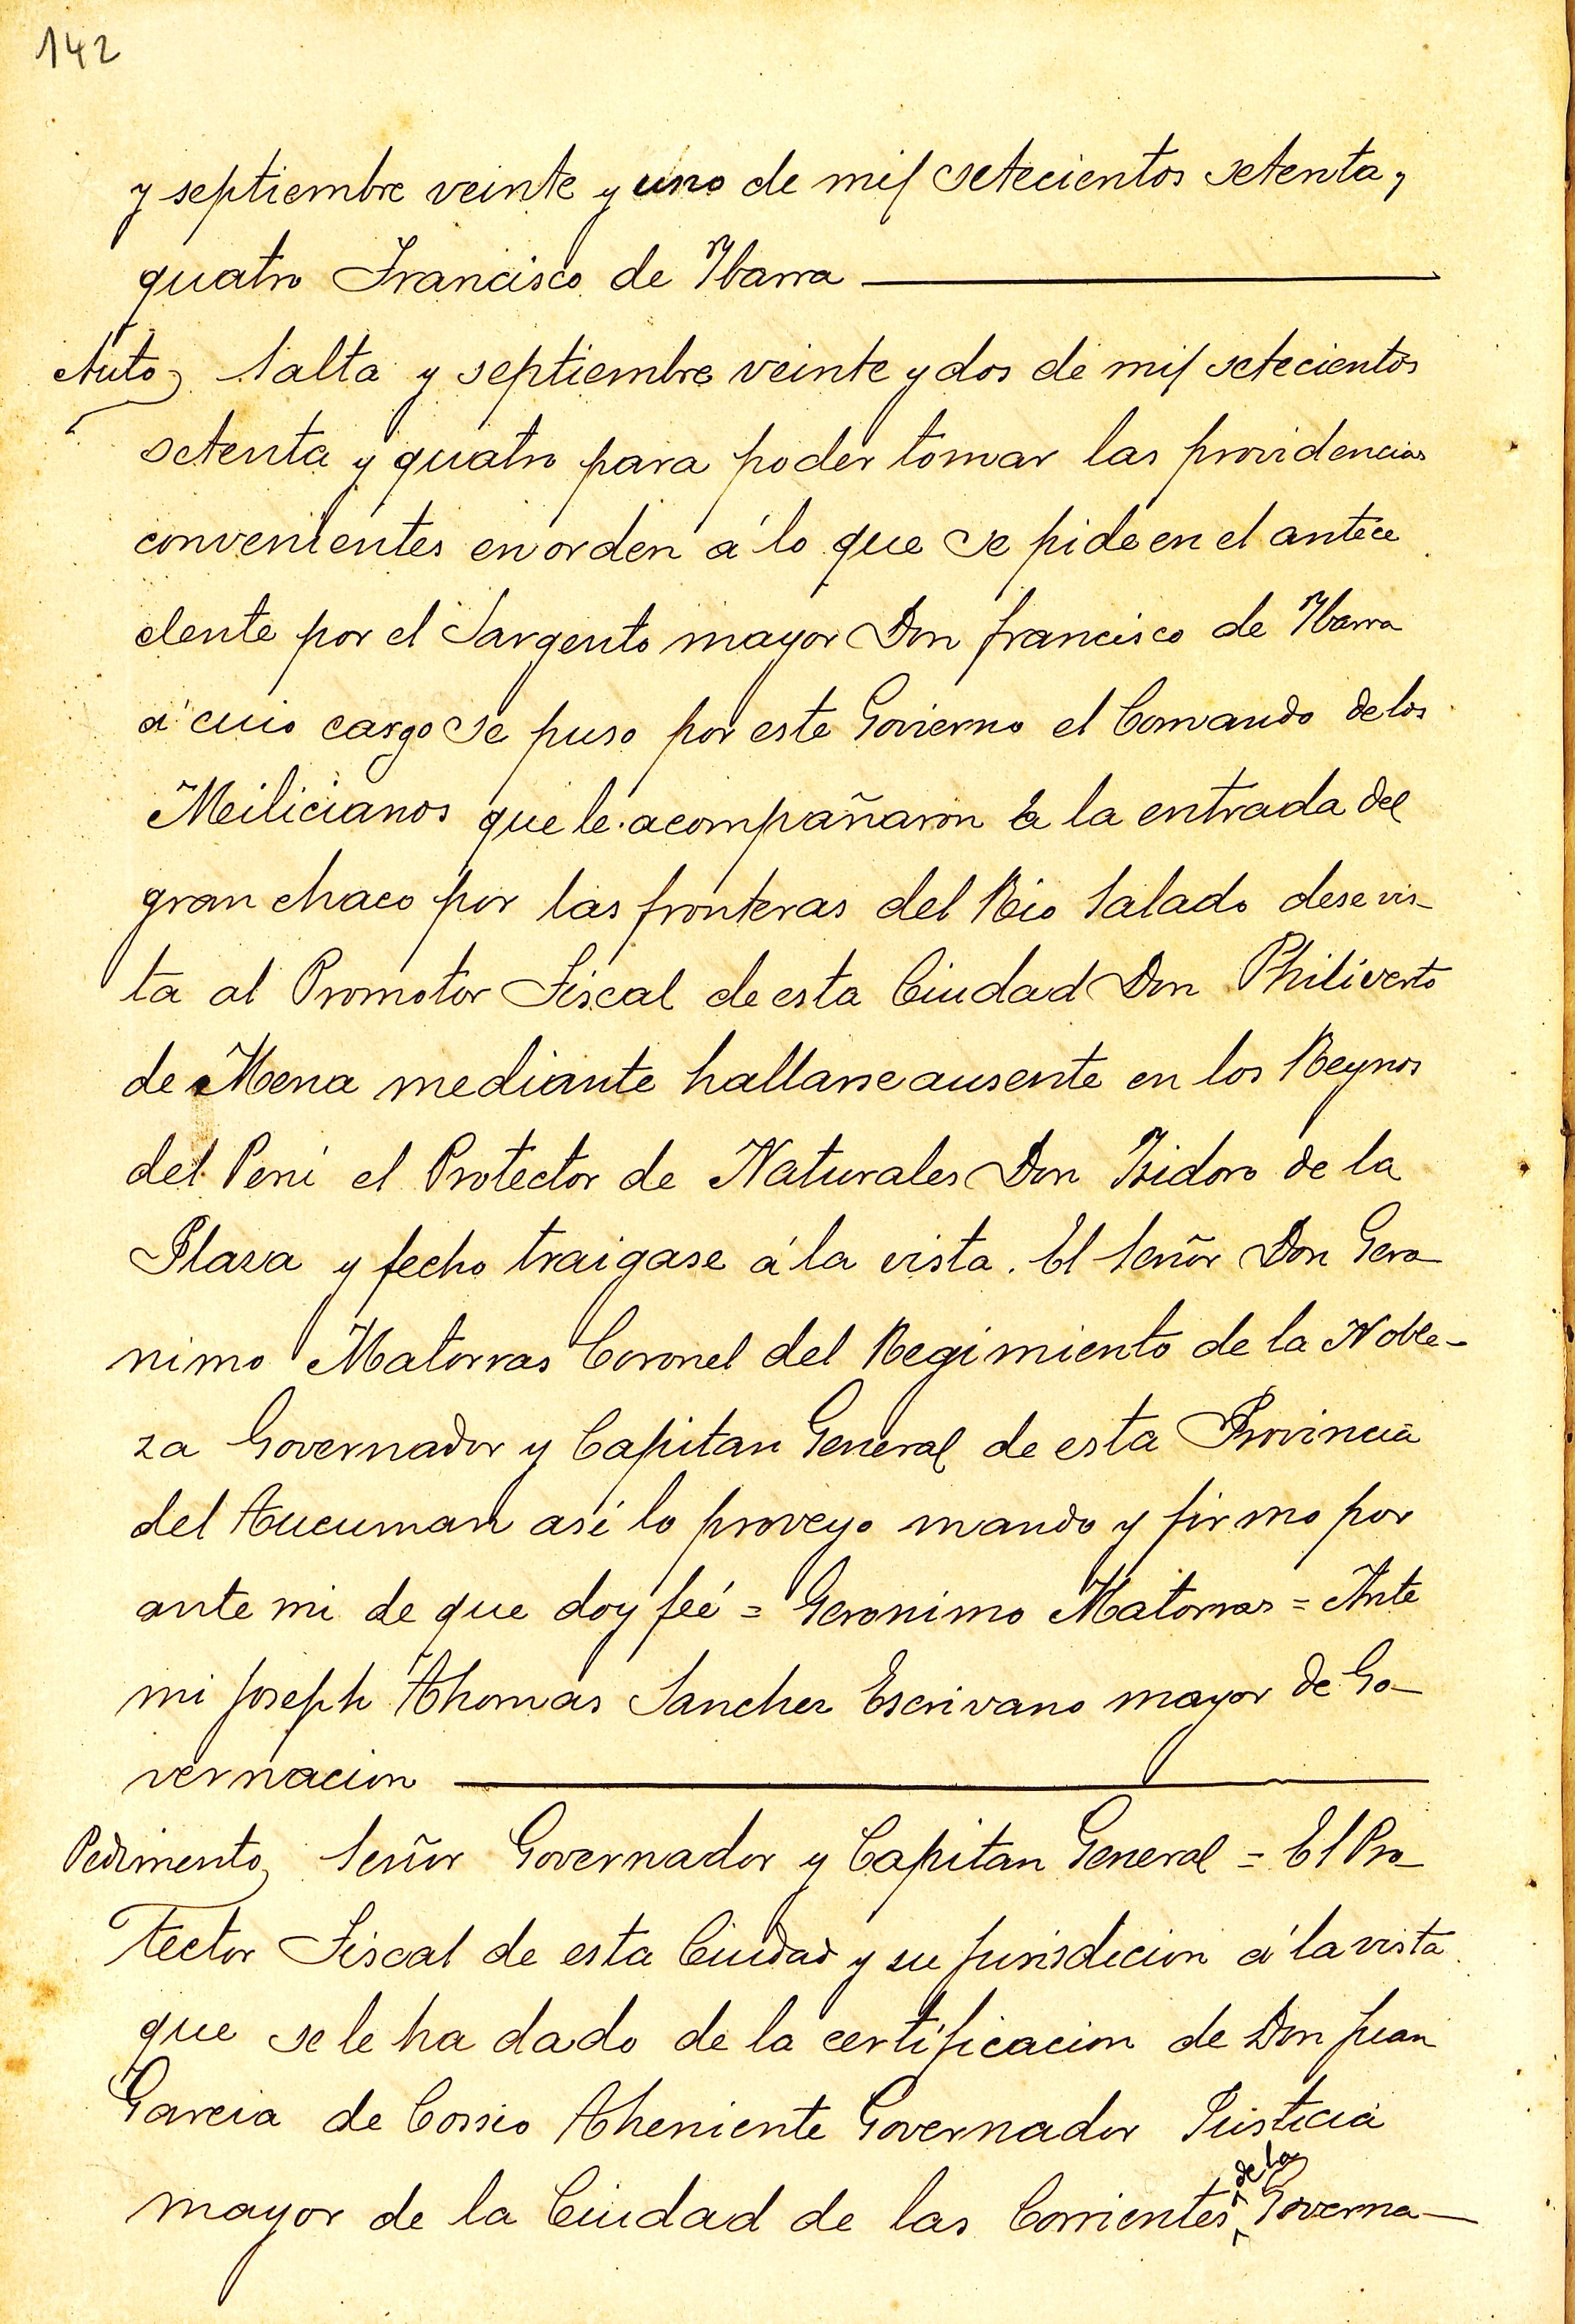 142
y septiembre veinte y uno de mil setecientos setenta y
quatro Francisco de Ybarra
Auto Salta y septiembre veinte y dos de mil setecientos
setenta y quatro para poder tomar las providencias
convenientes en orden á lo que se pide en el antece
dente por el Sargento mayor Don francisco de Ybarra
á cuio cargo se puso por este Govierno el Comando de los
Meilicianos que le acompañaron a la entrada del
gran chaco por las fronteras del Rio Salado dese vis-
ta al Promotor Fiscal de esta Ciudad Don Philiverto
de Mena mediante hallarse ausente en los Reynos
del Perú el Protector de Naturales Don Isidoro de la
Plaza y fecho traigase á la vista. El Señor Don Gero-
nimo Matorras Coronel del Regimiento de la Noble-
za Governador y Capitan General de esta Provincia
del Tucuman asi lo proveyo mando y firmo por
ante mi de que doy feé = Geronimo Matorras = Ante
mi Joseph Thomas Sanchez Escrivano mayor de Go-
vernacion
Pedimento Señor Governador y Capitan General = El Pro-
tector Fiscal de esta Ciudad y su jurisdicion á la vista
que se le ha dado de la certificacion de Don Juan
Garcia de Cossio Theniente Governador Justicia
de la
mayor de la Ciudad de las Corrientes Governa-